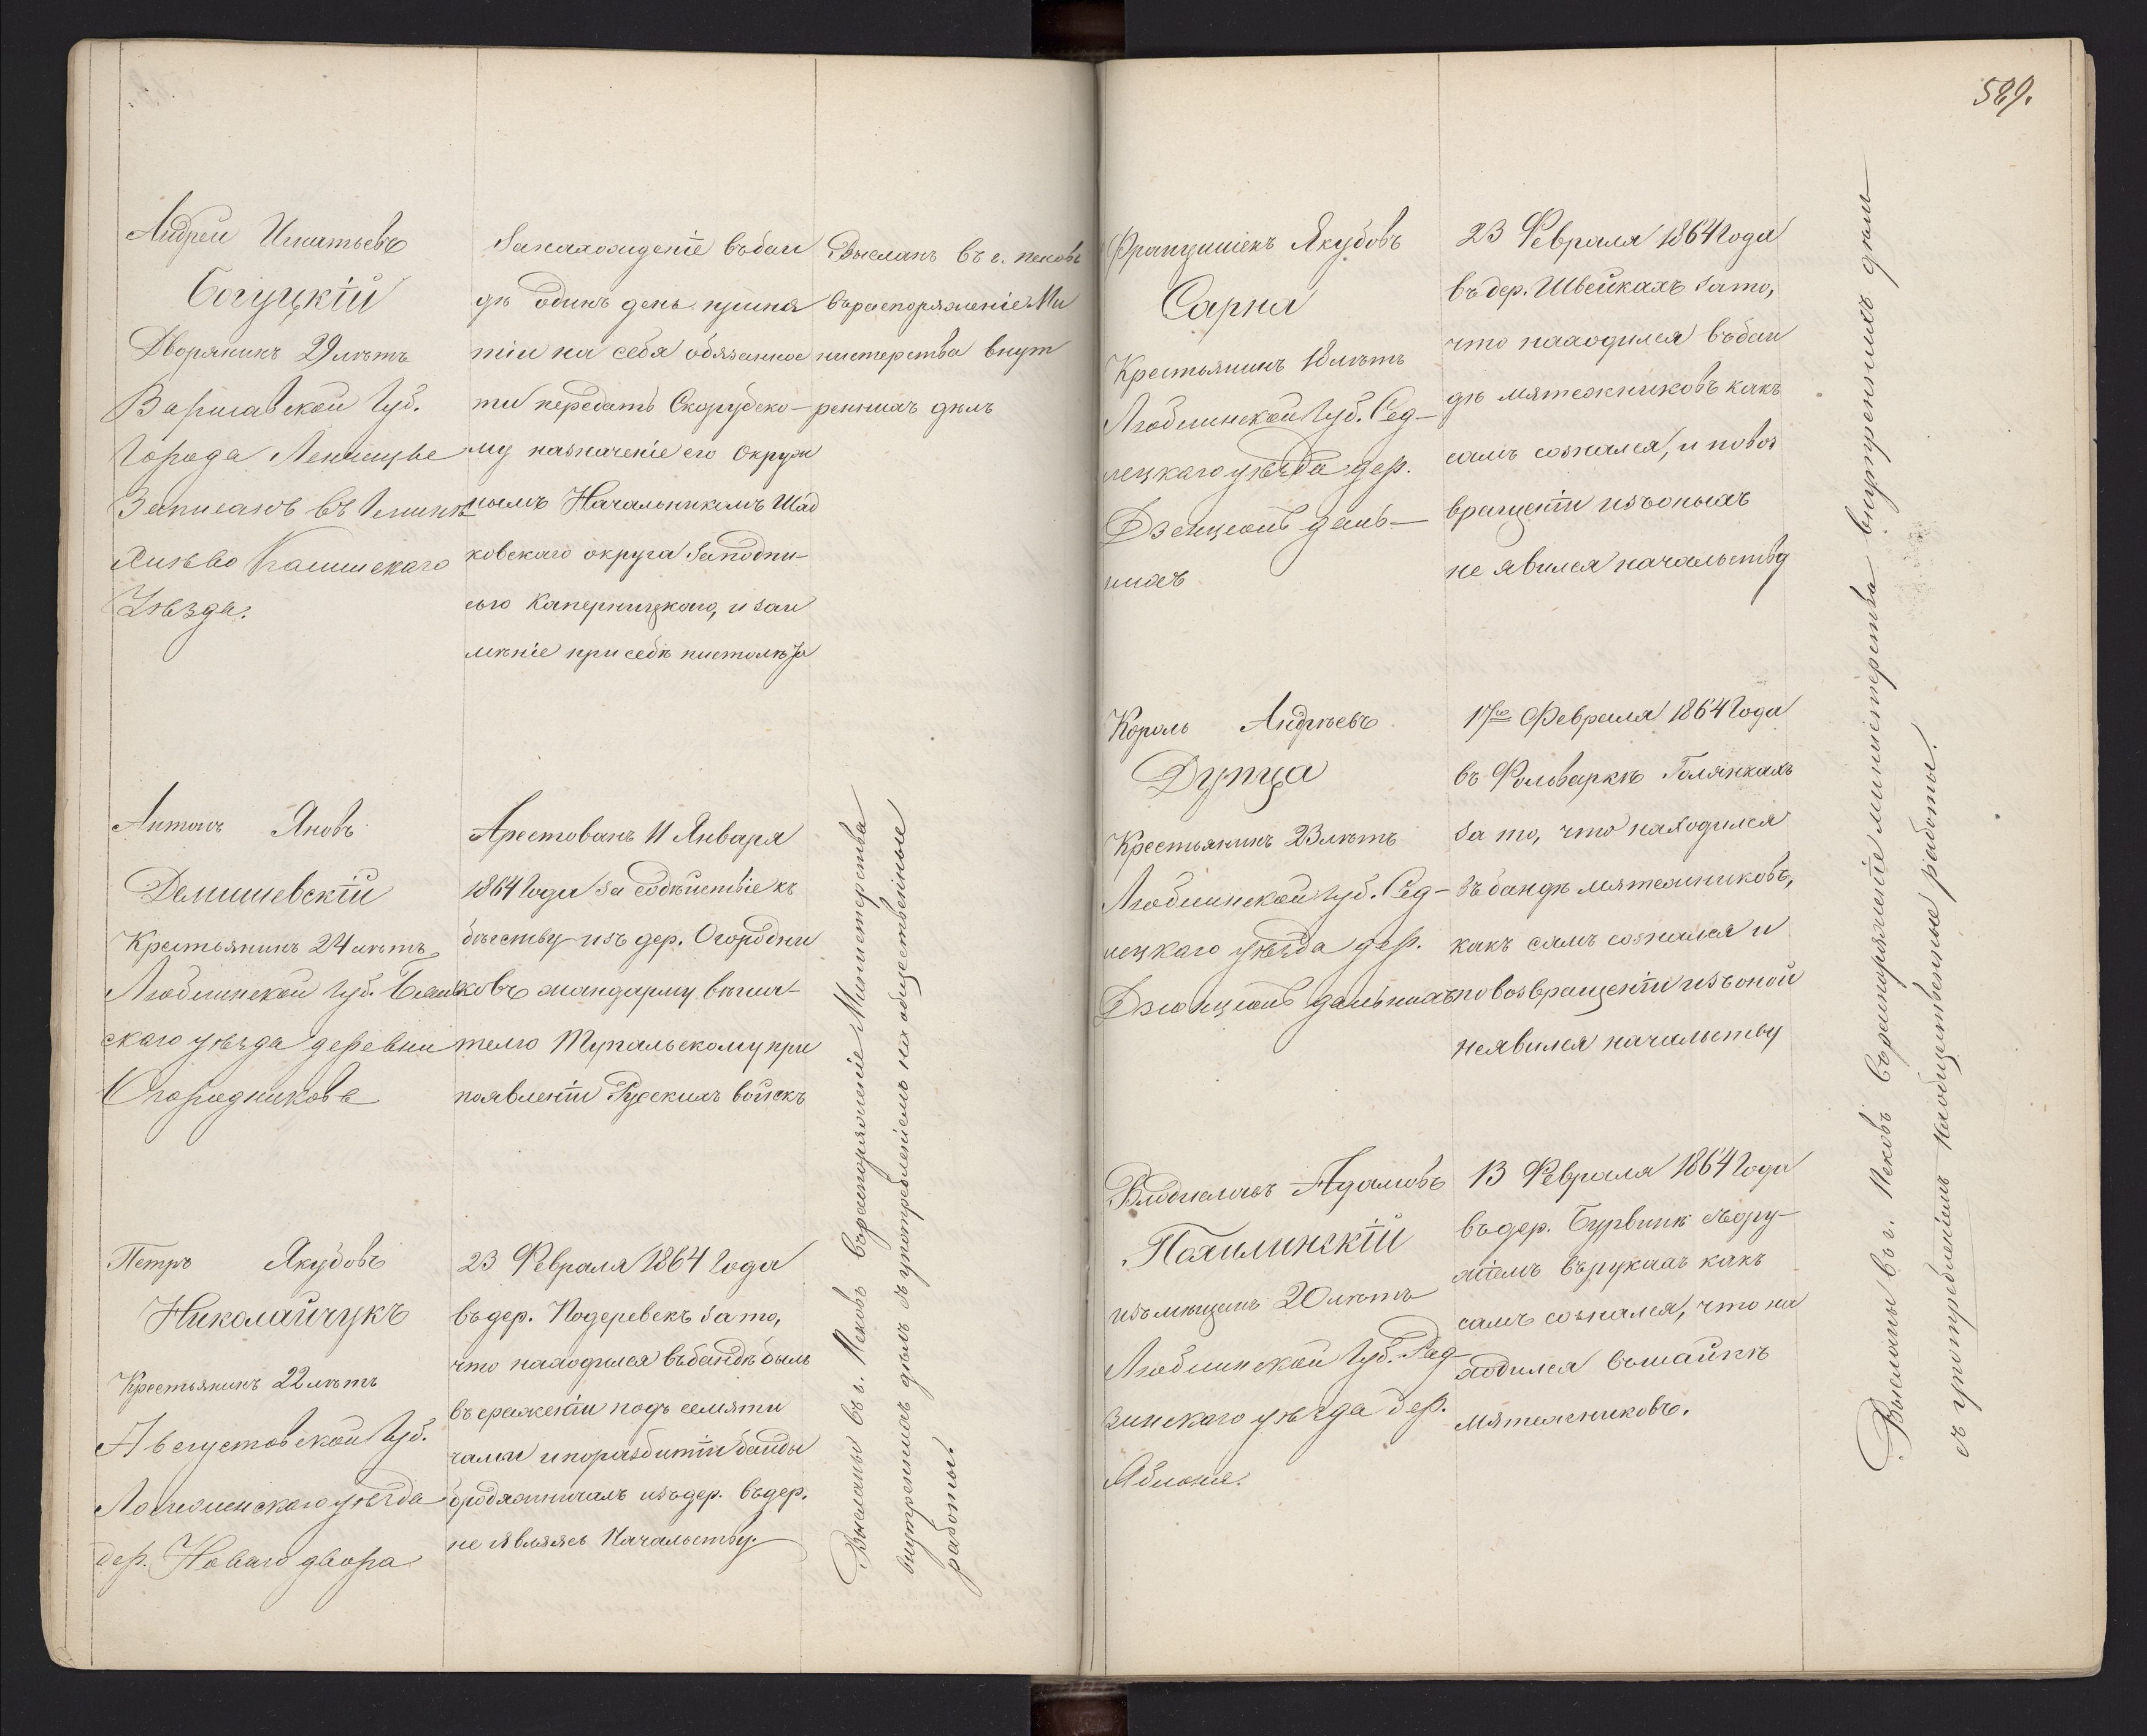 589.
Андрей Игнатьевъ
Богуцкій
Дворянинъ 29 лѣтъ
Варшавской Губ.
Города Ленчицы
Записанъ въ Гмине
Уѣзда.
За нахожденіе въ бан
дѣ одинъ день, приня
тіи на себя обязаннос
ти передать Скорубско-
му назначеніе его Окруж
нымъ Начальникомъ Шад
ковскаго округа за подпи-
сью Каперницкаго, и за и
мѣніе при себѣ пистолета
Высланъ въ г. Псковъ
въ распоряженіе Ми
нистерства внут
реннихъ дѣлъ
Антонъ Яновъ
Демишевскій
Крестьянинъ 24 лѣтъ
Люблинской Губ. Бяль
скаго уѣзда деревни
Огородниковъ
Арестованъ 11 Января
1864 Года за содѣйствіе къ
бѣгству изъ дер. Огородни
ковъ жандарму вѣша-
телю Тупальскому при
появленіи Русскихъ войскъ
Петръ Якубовъ
Николайчукъ
Крестьянинъ 22 лѣтъ
Августовской Губ.
уѣзда
дер. Новаго двора
23 Февраля 1864 Года
въ дер. Подеревекъ за то,
что находился въ бандѣ былъ
въ сраженіи подъ Семяти
чами и по разбитіи банды
бродяжничалъ изъ дер. въ дер.
не являясь Начальству.
Высланы въ г. Псковъ въ распоряженіе Министерства
внутреннихъ дѣлъ съ употребленіемъ на общественные
работы.
Францишекъ Якубовъ
Сарна
Крестьянинъ 18 лѣтъ
Люблинской Губ. Сед-
лецкаго уѣзда дер.
даль-
нихъ
23 Февраля 1864 Года
въ дер. Швейкахъ за то,
что находился въ бан
дѣ мятежниковъ какъ
самъ сознался, и по воз
вращеніи изъ оныхъ
не явился начальству
Кароль Андреевъ
Дупца
Крестьянинъ 23 лѣтъ
Люблинской Губ. Сед-
лецкаго уѣзда дер.
дальнихъ
17го Февраля 1864 Года
въ Фольваркѣ Голянкахъ
за то, что находился
въ бандѣ мятежниковъ,
какъ самъ сознался и
по возвращеніи изъ оной
не явился начальству
Владиславъ Адамовъ
Похилинскій
изъ мѣщанъ 20 лѣтъ
Люблинской Губ. Рад
зинскаго уѣзда дер.
Яблоня.
13 Февраля 1864 Года
въ дер. Бурвинѣ съ ору-
жіемъ въ рукахъ какъ
самъ сознался, что на
ходился въ шайкѣ
мятежниковъ.
Высланы въ г. Псковъ въ распоряженіе министерства внутреннихъ дѣлъ
съ употребленіемъ на общественные работы.